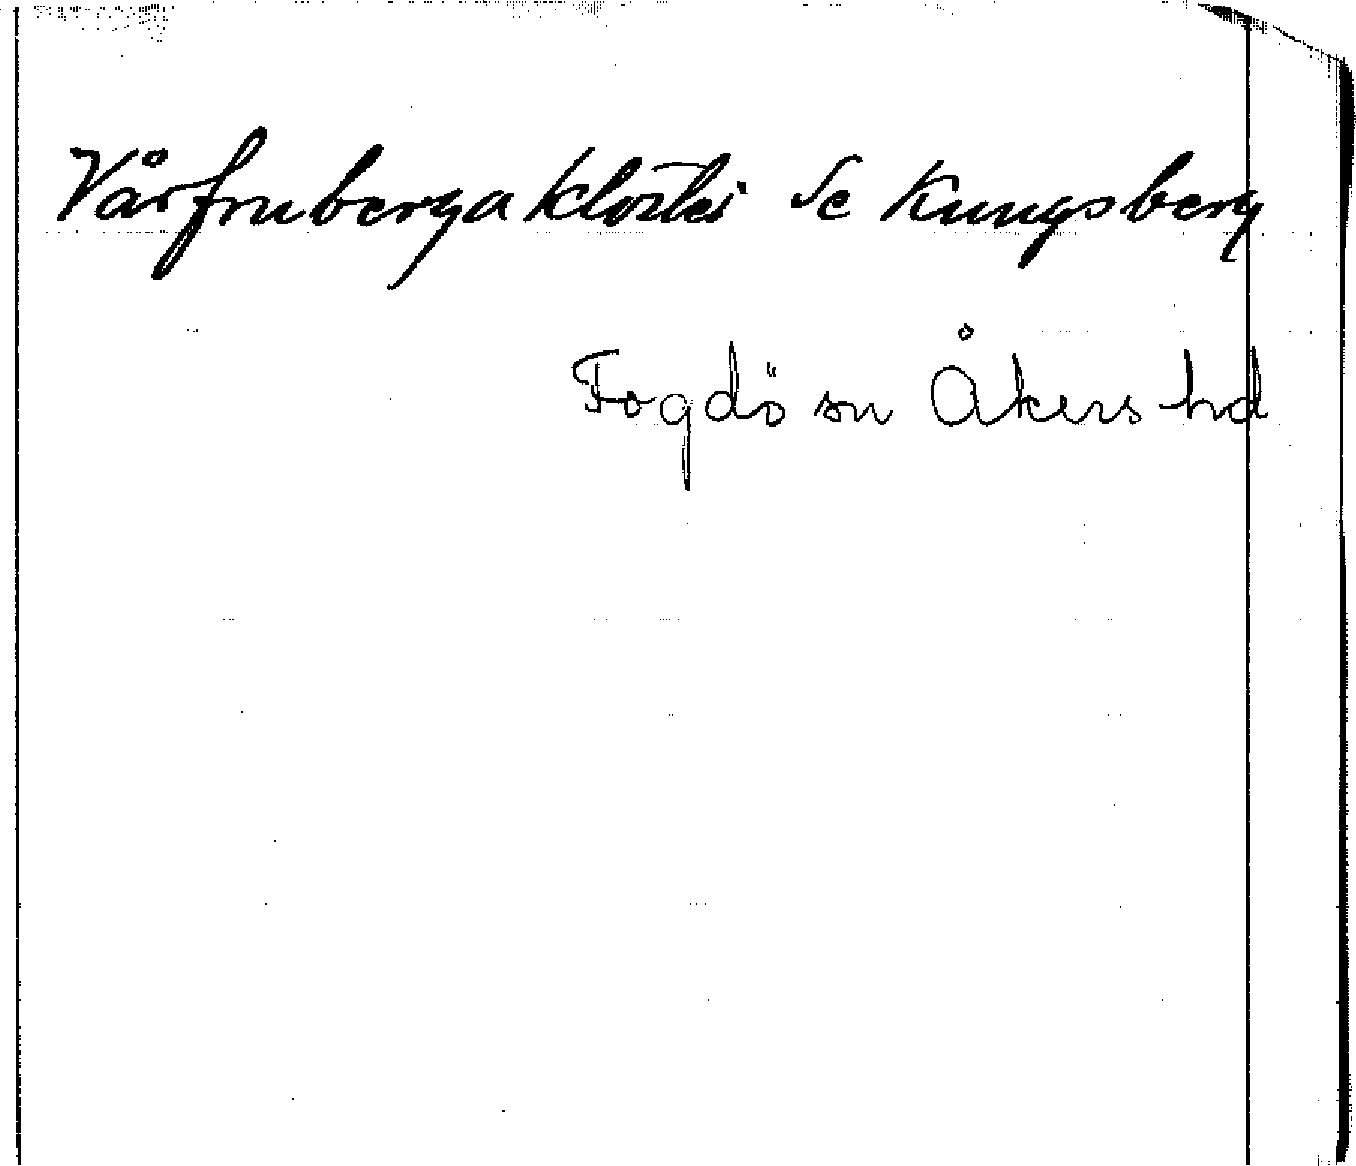 Vårfruberga kloster Se Kungsberg
Fogdö sn Åkers hd